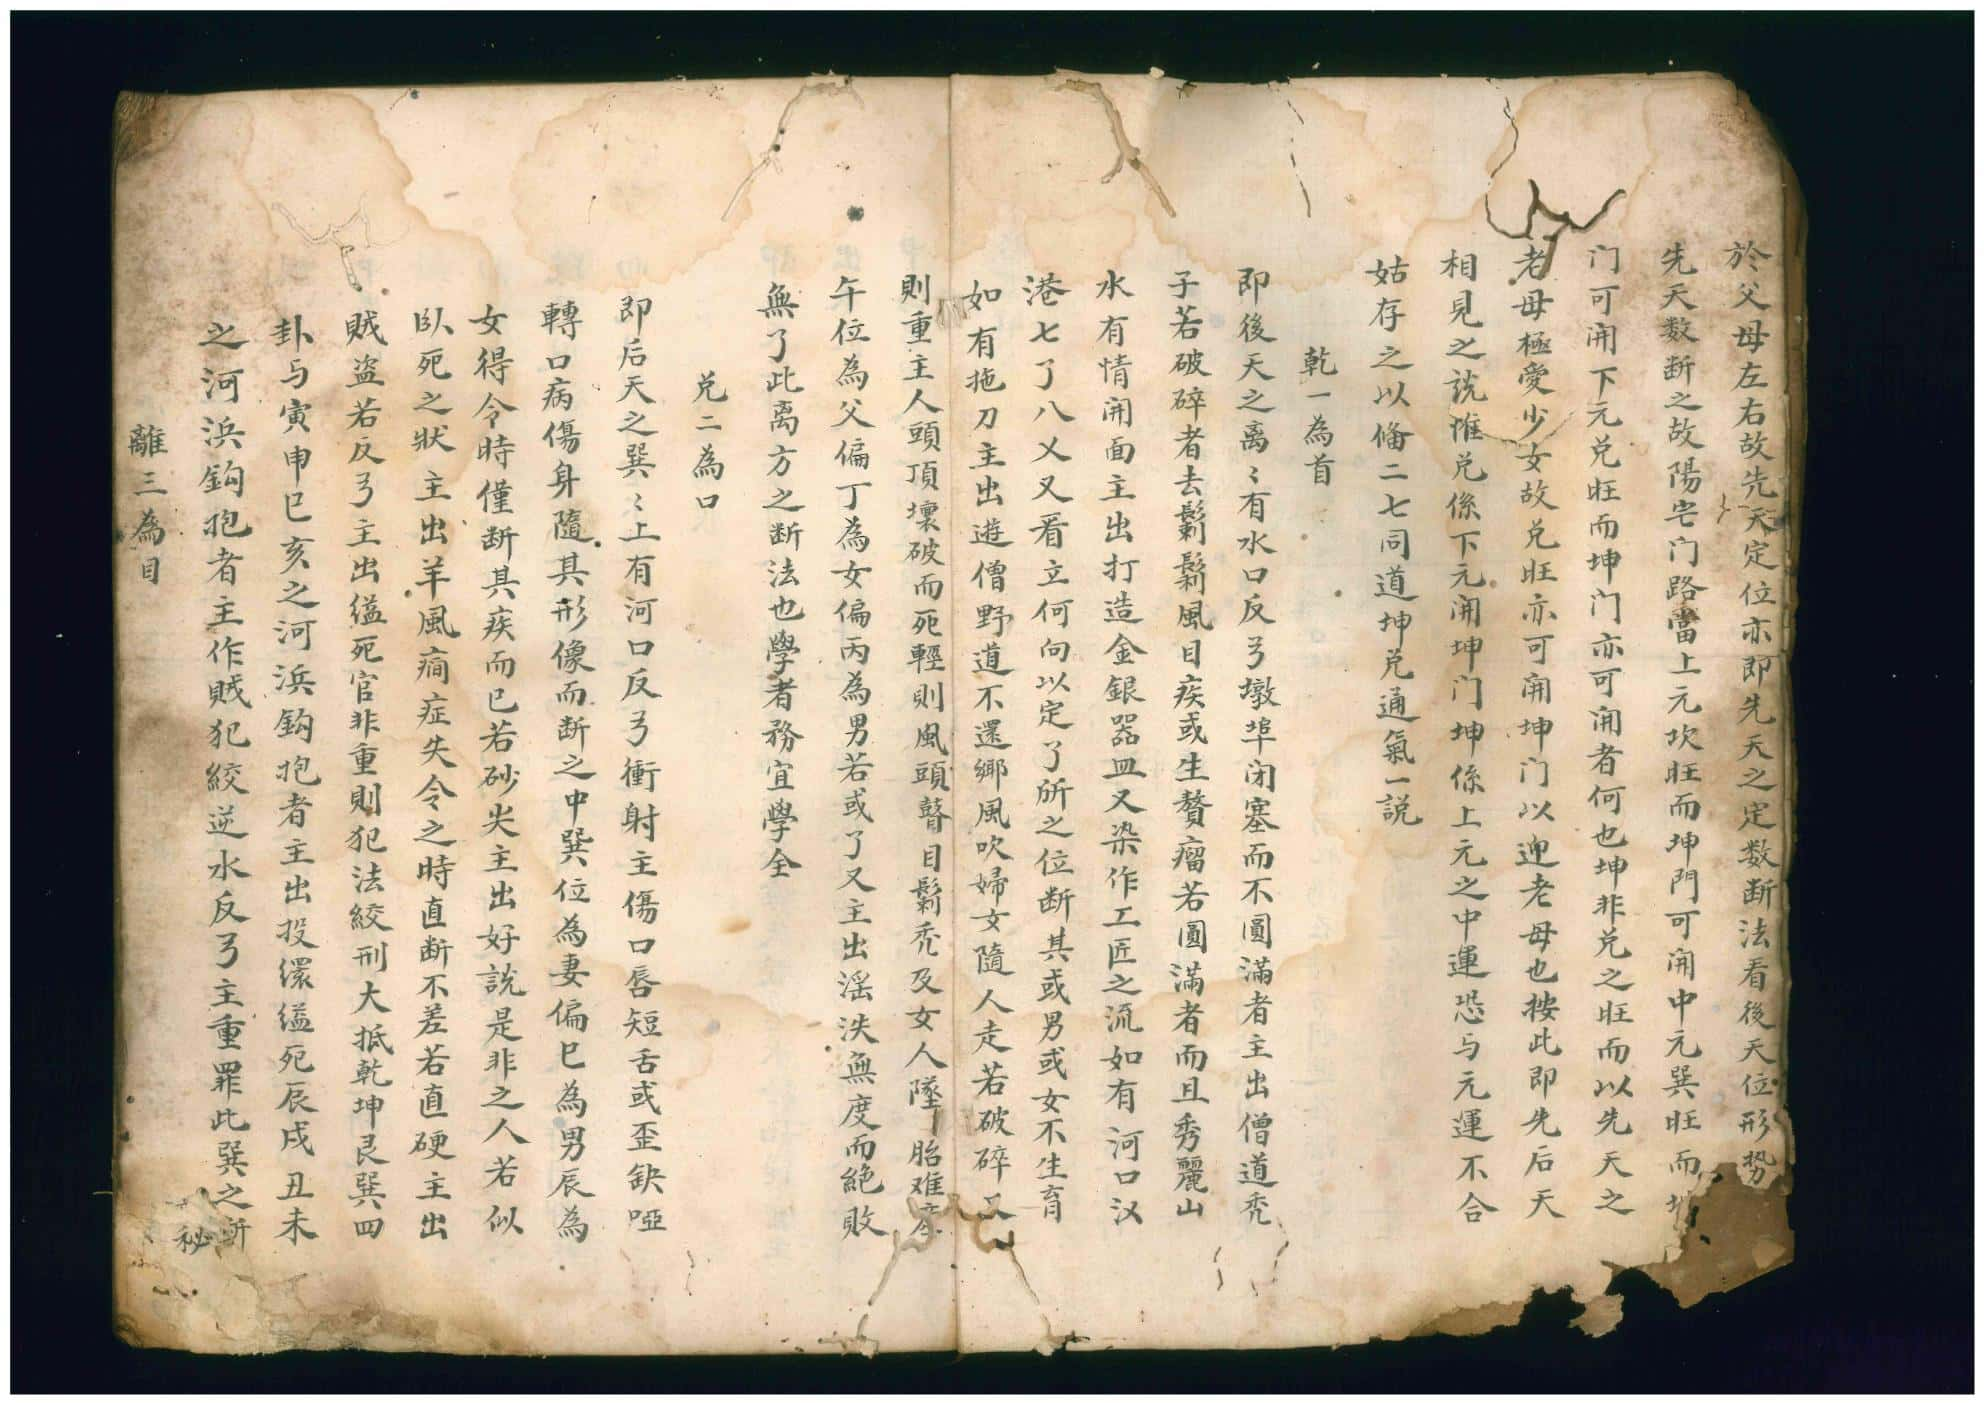 於父母左右故先天定位亦即先天之定数断法看後天位形势
先天数断之故陽宅门路當上元坎旺而坤門可開中元巽旺而
门可開下元兑旺而坤门亦可開者何也坤非兑之旺而以先天之
老母極愛少女故兑旺亦可開坤门以迎老母也按此即先后天
相見之说惟兑係下元開坤门坤係上元之中運恐与元運不合
姑存之以俻二七同道坤兑通氣一説
乾一為首
即後天之离〻有水口反弓墩埠闭塞而不圓滿者主出僧道秃
子若破碎者去鬎鬁風目疾或生贅瘤若圓滿者而且秀麗山
水有情開面主出打造金銀器皿又染作工匠之流如有河口汊
港七了八乂又看立何向以定了所之位断其或男或女不生育
如有拖刀主出遊僧野道不還鄉風吹婦女隨人走若破碎又
則重主人頭頂壞破而死輕則風頭瞽目鬎秃及女人墜胎难
午位為父偏丁為女偏丙為男若或了又主出滛泆無度而絶敗
無了此离方之断法也學者務宜學全
兑二為口
即后天之巽〻上有河口反弓衝射主傷口唇短舌或歪缺啞
轉口病傷身隨其形像而断之中巽位為妻偏巳為男辰為
女得令時僅断其疾而已若砂尖主出好説是非之人若似
臥死之狀主出羊風癎症失令之時直断不差若直硬主出
賊盜若反弓主出縊死官非重則犯法絞刑大抵乾坤艮巽四
卦与寅申巳亥之河浜鈎抱者主出投繯縊死辰戌丑未
之河浜鈎抱者主作賊犯絞逆水反弓主重罪此巽之断
秘
離三為目